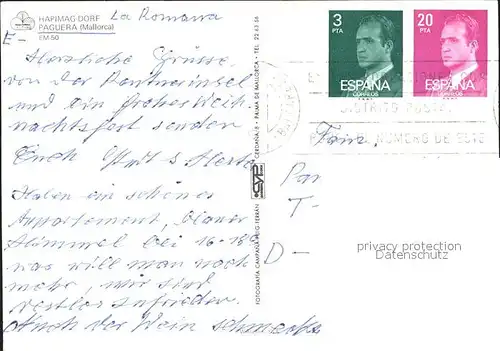 HAPIMAG DORF
PAGUERA (Mallorca)
EM 50
La Romana
E-
Herzliche Grüsse,
von der Partnerinsel
und ein frohes Weih
nachtsfest senden
Euch s Herta
Haben ein schönes
Appartement, blauer
Himmel bei 16-18°
was will man noch
mehr, wir sind
restlos zufrieden.
Auch der Wein schmeckt
FOTOGRAFIA, CAMPAÑA PUIG FERRAN
CERDAÑA, 8 - PALMA DE MALLORCA - TEL. 22 63 06
CYP
3
PTA
ESPAÑA
CORREOS
20
PTA
ESPAÑA
DISTRITO POSTAL
NUMERO DE ESTE
Fam.
Par
T-
D-
privacy protection
Datenschutz